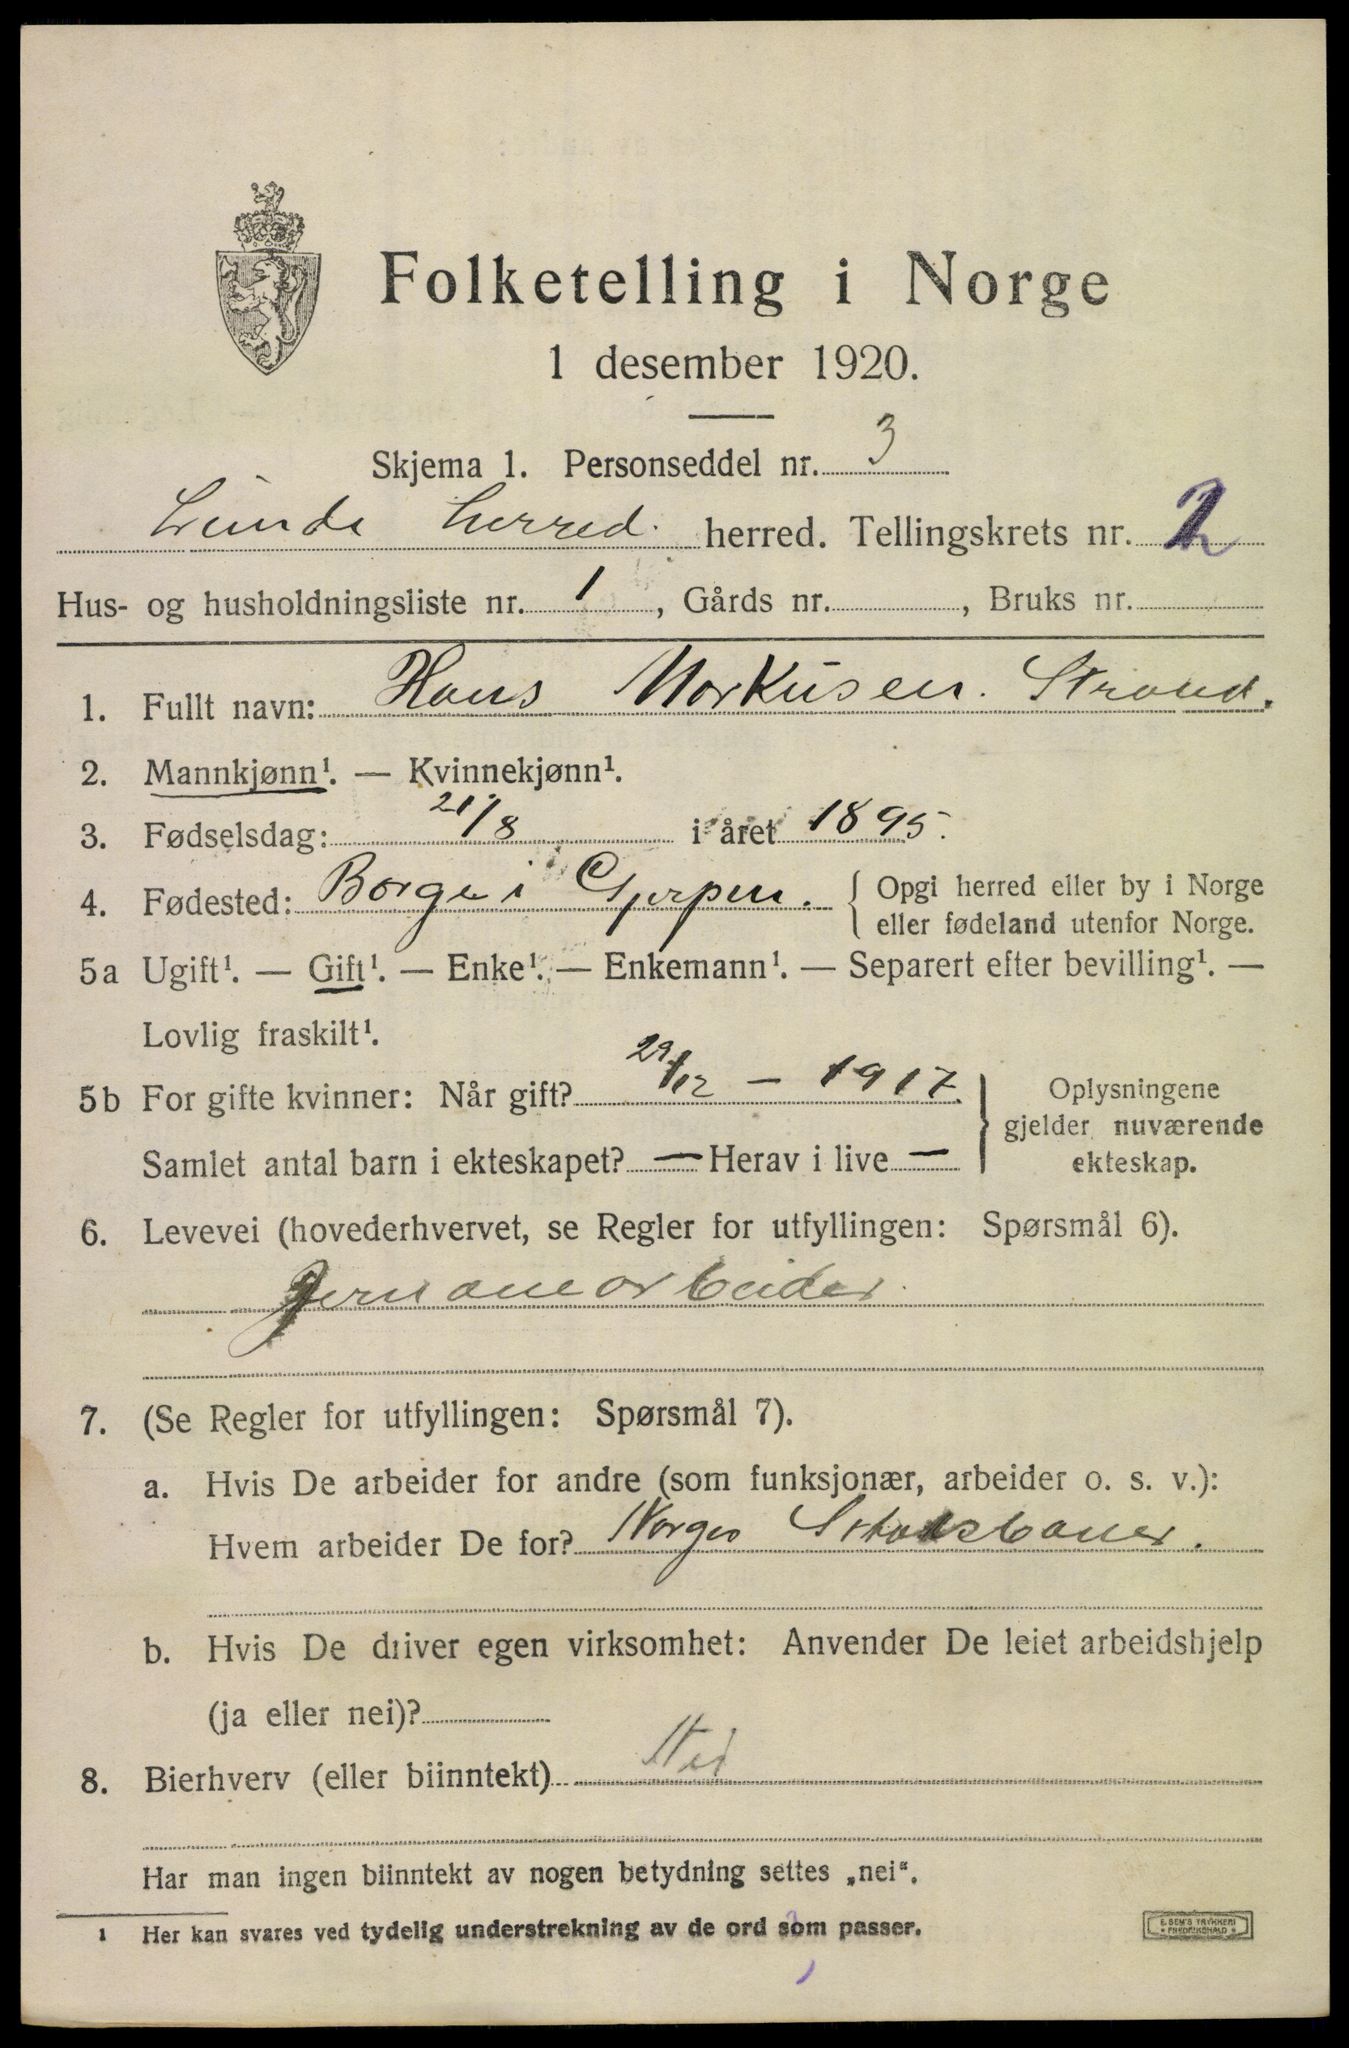 Folketelling i Norge
1 desember 1920.
Skjema 1. Personseddel nr. 3
Lunde herred. herred. Tellingskrets nr. 2
Hus- og husholdningsliste nr. 1, Gårds nr. , Bruks nr.
1. Fullt navn: Hans Markusen. Strand.
2. Mannkjønn¹. — Kvinnekjønn¹.
3. Fødselsdag: 21/8 i året 1895.
4. Fødested: Borge i Gjerpen. Opgi herred eller by i Norge
eller fødeland utenfor Norge.
5a Ugift¹. — Gift¹. — Enke¹. — Enkemann¹. — Separert efter bevilling¹. —
Lovlig fraskilt¹.
5b For gifte kvinner: Når gift? 29/12 — 1917. Oplysningene
gjelder nuværende
Samlet antal barn i ekteskapet? — Herav i live — ekteskap.
6. Levevei (hovederhvervet, se Regler for utfyllingen: Spørsmål 6).
Jernanearbeider.
7. (Se Regler for utfyllingen: Spørsmål 7).
a. Hvis De arbeider for andre (som funksjonær, arbeider o. s. v.):
Hvem arbeider De for? Norges Statsbaner.
b. Hvis De driver egen virksomhet: Anvender De leiet arbeidshjelp
(ja eller nei)?
8. Bierhverv (eller biinntekt) Nei
Har man ingen biinntekt av nogen betydning settes „nei“.
1 Her kan svares ved tydelig understrekning av de ord som passer.
E. SEM'S TRYKKERI
FREDRIKSHALD